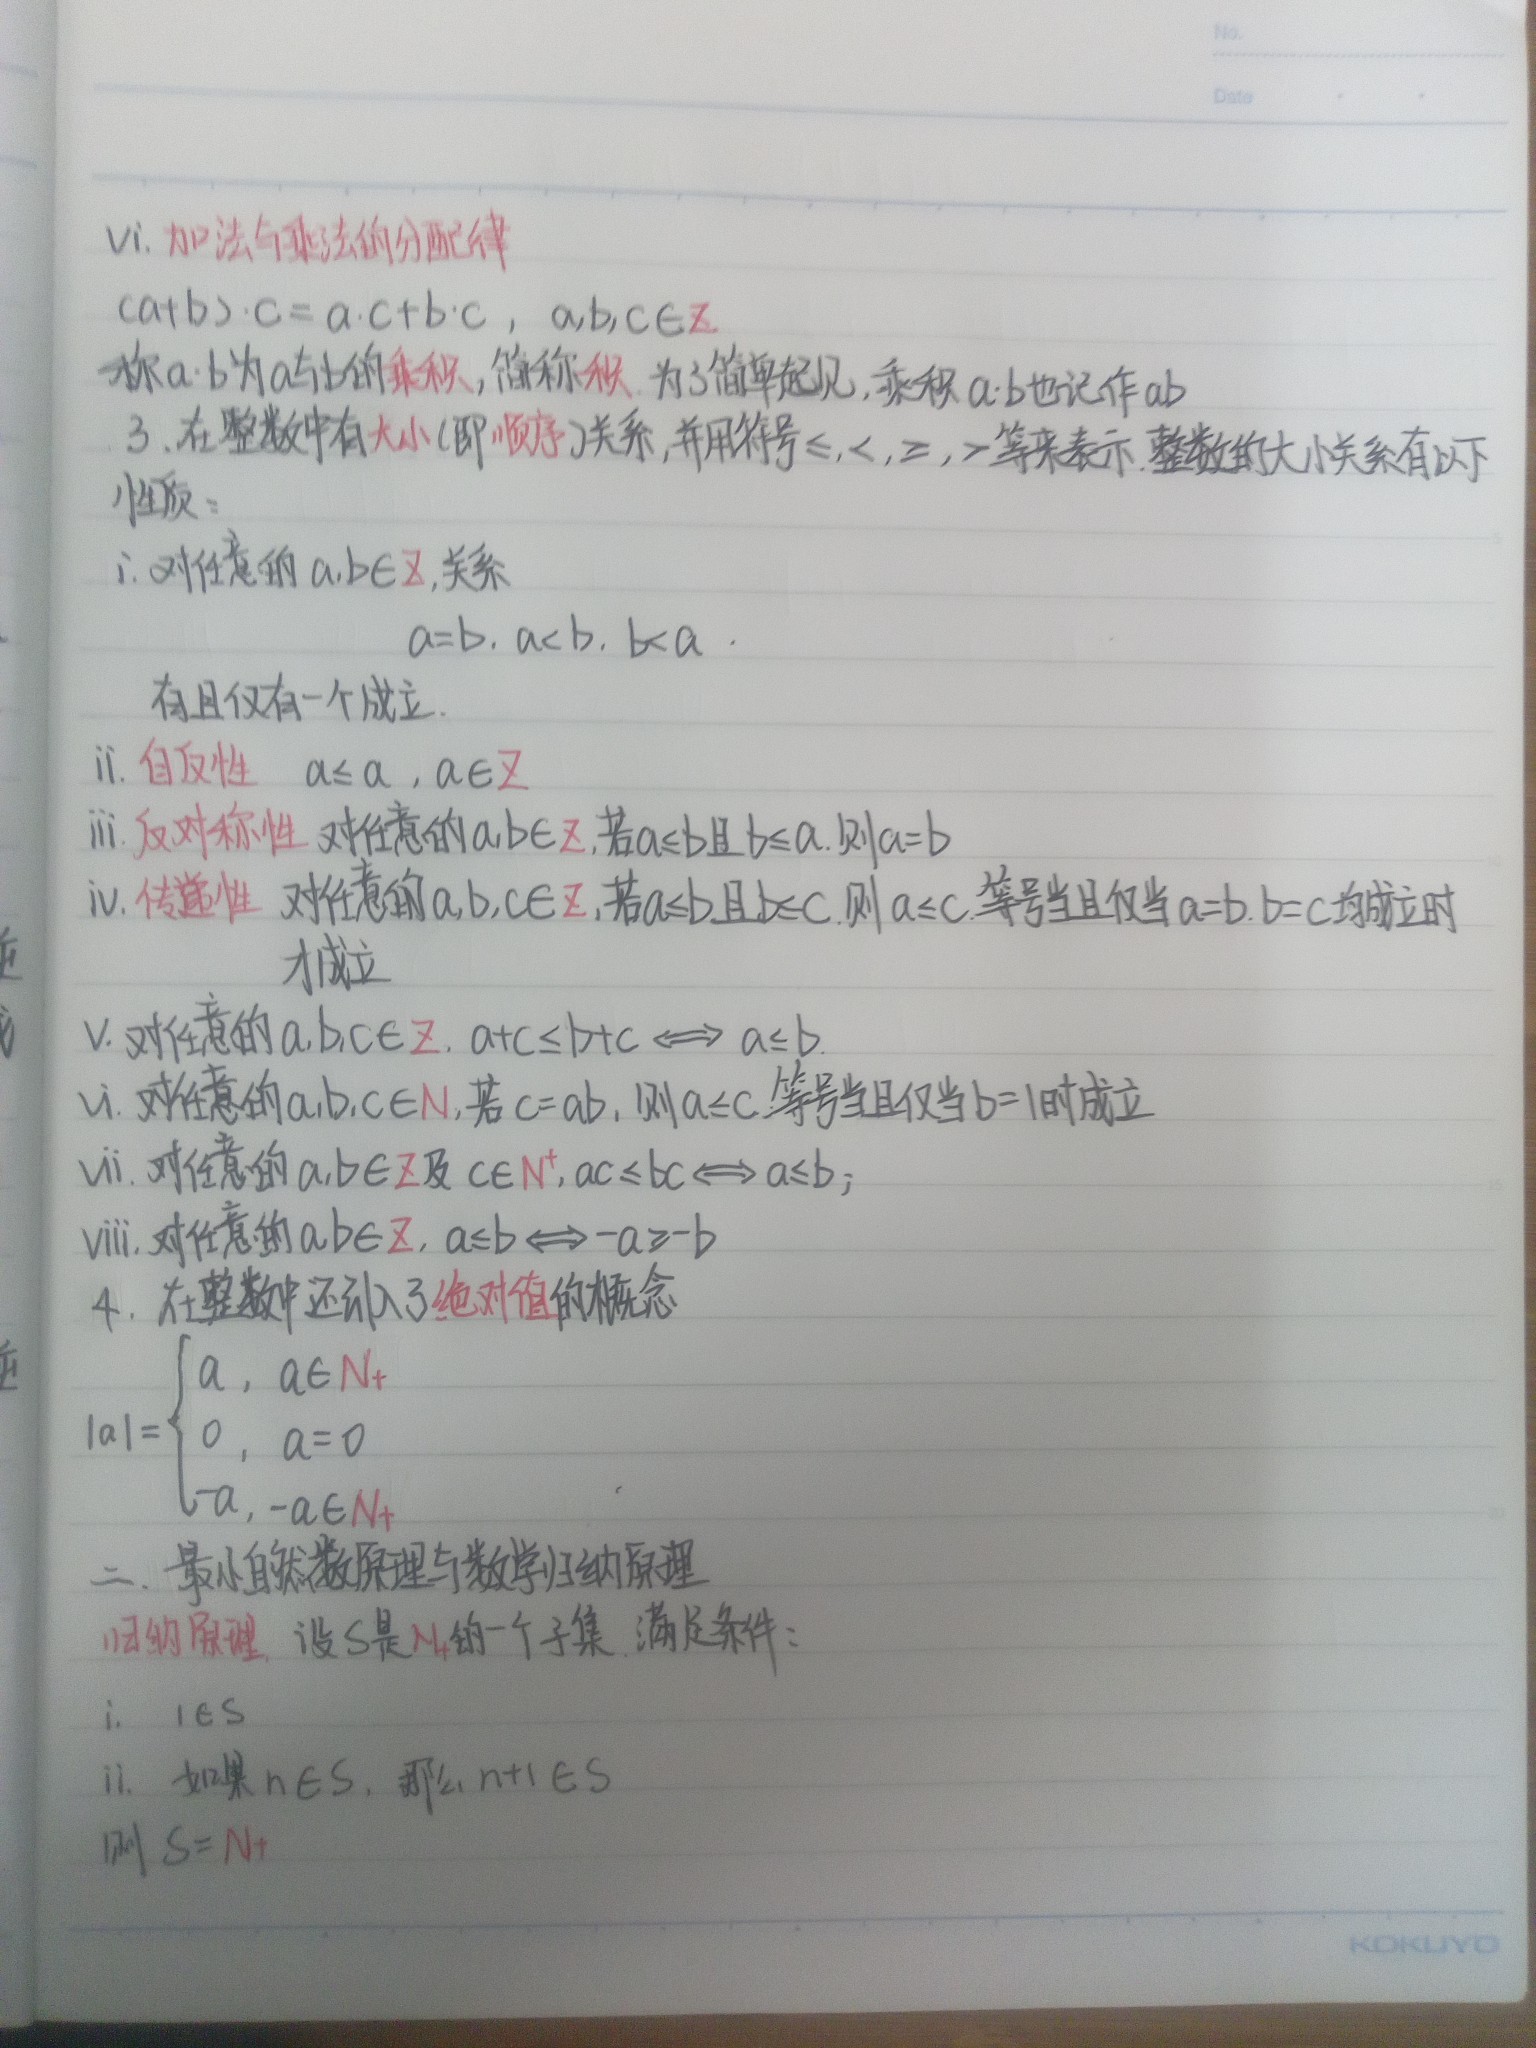 No.
Date
vi. 加法与乘法的分配律
(a+b)·c=a·c+b·c, a,b,c∈Z
称a·b为a与b的乘积,简称积.为了简单起见,乘积a·b也记作ab
3.在整数中有大小(即顺序)关系,并用符号≤,<,≥,>等来表示.整数的大小关系有以下
性质:
i.对任意的a,b∈Z,关系
a=b, a<b, b<a.
有且仅有一个成立.
ii.自反性 a≤a,a∈Z
iii.反对称性 对任意的a,b∈Z,若a≤b且b≤a.则a=b
iv.传递性 对任意的a,b,c∈Z,若a≤b且b≤c.则a≤c.等号当且仅当a=b.b=c均成立时
才成立
v.对任意的a,b,c∈Z. a+c≤b+c⟺a≤b.
vi.对任意的a,b,c∈N,若c=ab,则a≤c.等号当且仅当b=1时成立
vii.对任意的a,b∈Z及c∈N⁺,ac≤bc⟺a≤b;
viii.对任意的a,b∈Z, a≤b⟺-a≥-b
4. 在整数中还引入了绝对值的概念
a, a∈N₊
|a|={ 0, a=0
-a, -a∈N₊
二.最小自然数原理与数学归纳原理
归纳原理.设S是N₊的一个子集.满足条件:
i. 1∈S
ii. 如果n∈S,那么n+1∈S
则 S=N₊
KOKUYO